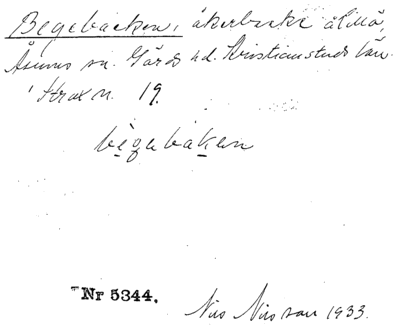 Begebacken, åkerbacke
Åsums sn. Gärds hd. Kristianstads län.
Strax n. 19.
begabaken
Nr 5344.
Nils Nilsson 1933.